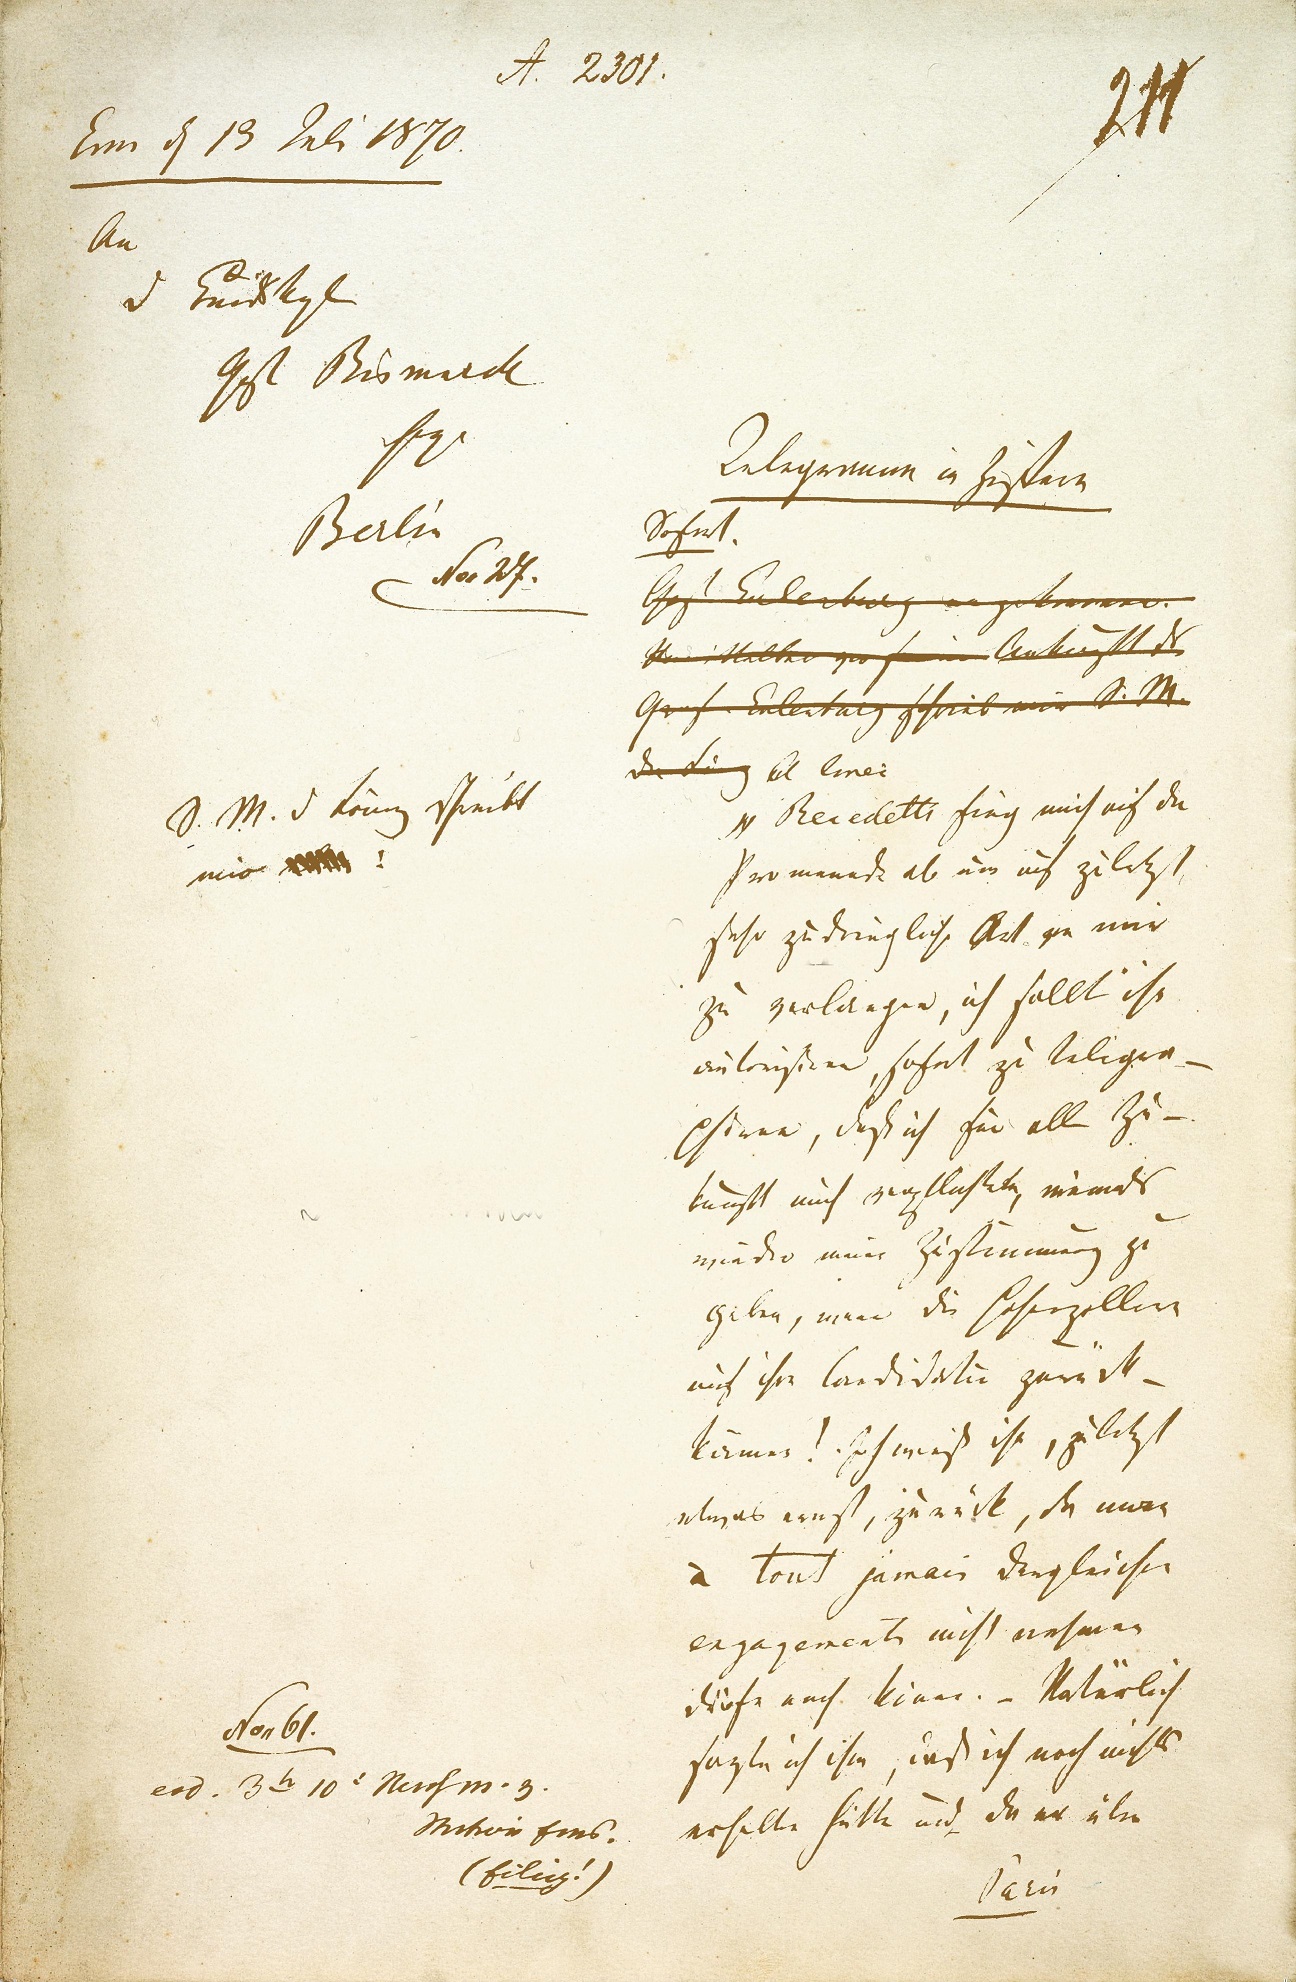 A. 2301.
211
Ems d 13 Juli 1870.
An
d Bundeskzl
Graf Bismarck
Berlin
No 27.
Telegramm in Ziffern
Sofort.
Graf Eulenburg angekommen.
Ankunft ds
Graf Eulenburg schrieb mir S. M.
der König
S. M. d König schreibt
mir :
"Benedetti fing mich auf der
Promenade ab um auf zuletzt
sehr zudringliche Art von mir
zu verlangen, ich sollte ihn
autorisiren, sofort zu telegra-
phiren, daß ich für alle Zu-
kunft mich verpflichtete, niemals
wieder meine Zustimmung zu
geben, wenn die Hohenzollern
auf ihre Candidatur zurück-
kämen! Ich wies ihn, zuletzt
etwas ernst, zurück, da man
à tout jamais dergleichen
engagements nicht nehmen
dürfe noch könne. – Natürlich
sagte ich ihm, daß ich noch nichts
erhalten hätte und, da er über
Paris
No 61.
eod. 3h 10 Nachm.
Station Ems.
(Eilig!)